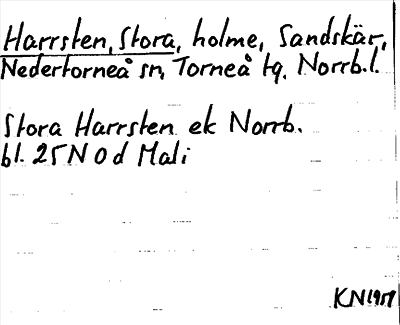 Harrsten, Stora, holme, Sandskär,
Nedertorneå sn, Torneå tg. Norrb.l.
Stora Harrsten ek Norrb.
bl. 25 N 0 d Mali
KN